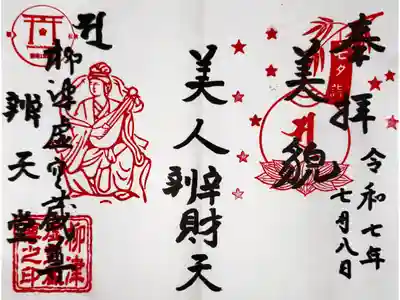 奉拝
令和七年
七月八日
七夕詣
美貌
美人辨財天
柳津虚空蔵尊
辨天堂